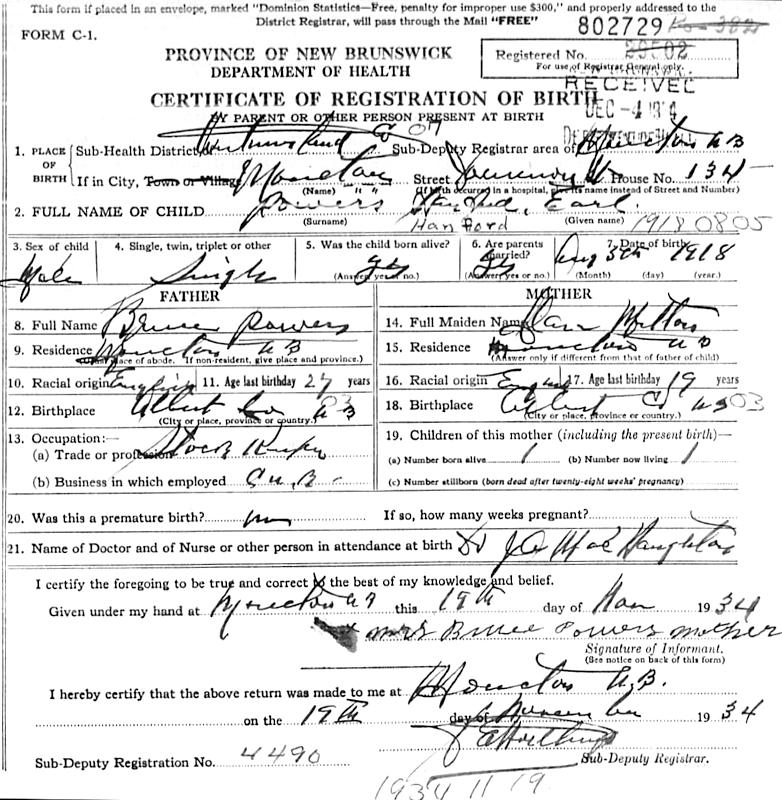 This form if placed in an envelope, marked "Dominion Statistics—Free, penalty for improper use $300," and properly addressed to the
District Registrar, will pass through the Mail "FREE"
802729
FORM C-1.
PROVINCE OF NEW BRUNSWICK
DEPARTMENT OF HEALTH
Registered No. 29502
For use of Registrar General only.
RECEIVED
DEC -4 1934
CERTIFICATE OF REGISTRATION OF BIRTH
BY PARENT OR OTHER PERSON PRESENT AT BIRTH
07
1. PLACE OF BIRTH Sub-Health District of Westmorland Co Sub-Deputy Registrar area of Moncton N B
If in City, Town or Village Moncton Street House No. 134
(Name) " " (If birth occurred in a hospital, give its name instead of Street and Number)
2. FULL NAME OF CHILD Powers Hanford, Earl.
(Surname) Hanford (Given name) 19180805
3. Sex of child 4. Single, twin, triplet or other 5. Was the child born alive? 6. Are parents married? 7. Date of birth
Male Single yes yes Aug 5th 1918
(Answer yes or no.) (Answer yes or no.) (Month) (day) (year.)
FATHER
8. Full Name Bruce Powers
9. Residence Moncton N B
(Usual place of abode. If non-resident, give place and province.)
10. Racial origin English 11. Age last birthday 27 years
12. Birthplace Albert Co N B 03
(City or place, province or country.)
13. Occupation:—
(a) Trade or profession Stock Keeper
(b) Business in which employed
MOTHER
14. Full Maiden Name Mitton
15. Residence Moncton N B
(Answer only if different from that of father of child)
16. Racial origin English 17. Age last birthday 19 years
18. Birthplace Albert Co N B 03
(City or place, province or country.)
19. Children of this mother (including the present birth)—
(a) Number born alive 1 (b) Number now living 1
(c) Number stillborn (born dead after twenty-eight weeks' pregnancy)
20. Was this a premature birth? no If so, how many weeks pregnant?
21. Name of Doctor and of Nurse or other person in attendance at birth Dr
I certify the foregoing to be true and correct to the best of my knowledge and belief.
Given under my hand at Moncton N B this 19th day of Nov 1934
x Mrs Bruce Powers mother
Signature of Informant.
(See notice on back of this form)
I hereby certify that the above return was made to me at Moncton N.B.
on the 19th day of November 1934
Sub-Deputy Registration No. 4490 Sub-Deputy Registrar.
1934 11 19